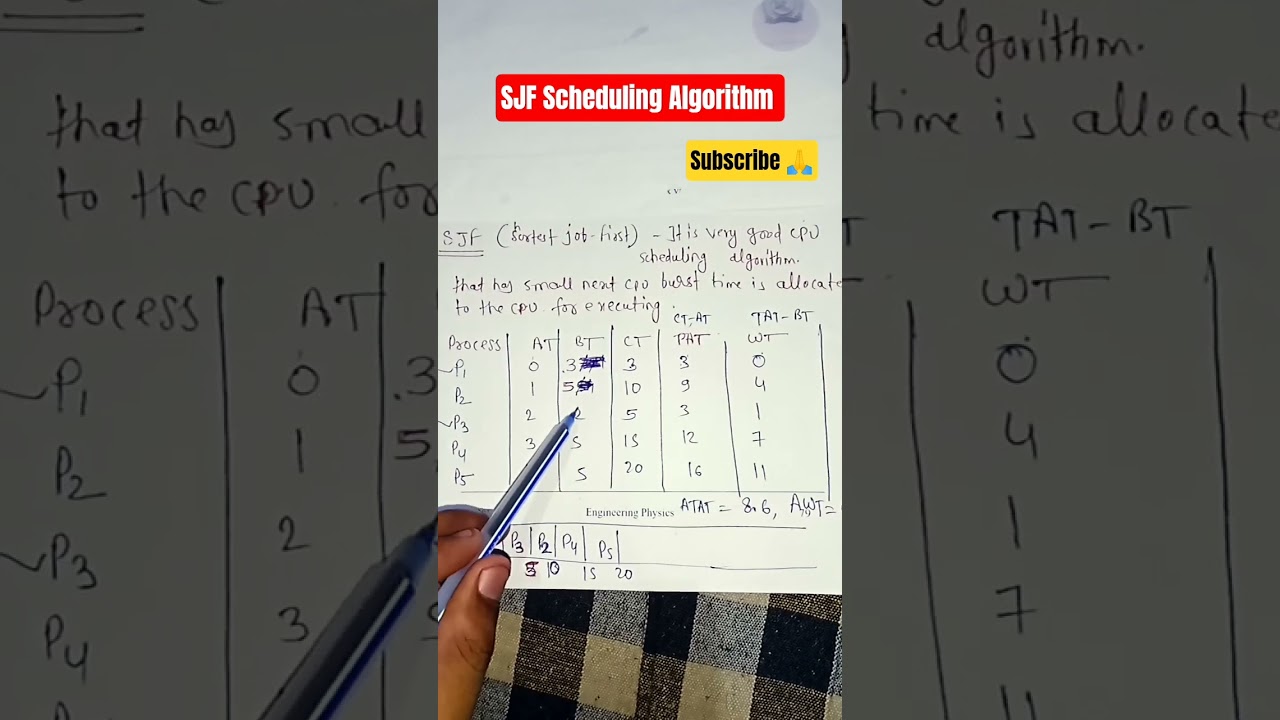 SJF Scheduling Algorithm
Subscribe 🙏
SJF (Sortest job-first) - It is very good CPU
scheduling algorithm.
that has small next cpu burst time is allocate
to the CPU for executing.
CT-AT TAT-BT
Process AT BT CT TAT WT
P1 0 3 3 3 0
P2 1 5 10 9 4
P3 2 2 5 3 1
P4 3 5 15 12 7
P5 5 20 16 11
ATAT = 8.6, AWT=
Engineering Physics
P3 P2 P4 P5
5 10 15 20
algorithm.
that has small
time is allocate
to the CPU for
TAT-BT
Process AT
WT
P1 0 .3
0
P2 1 5
4
P3 2
1
P4 3
7
11